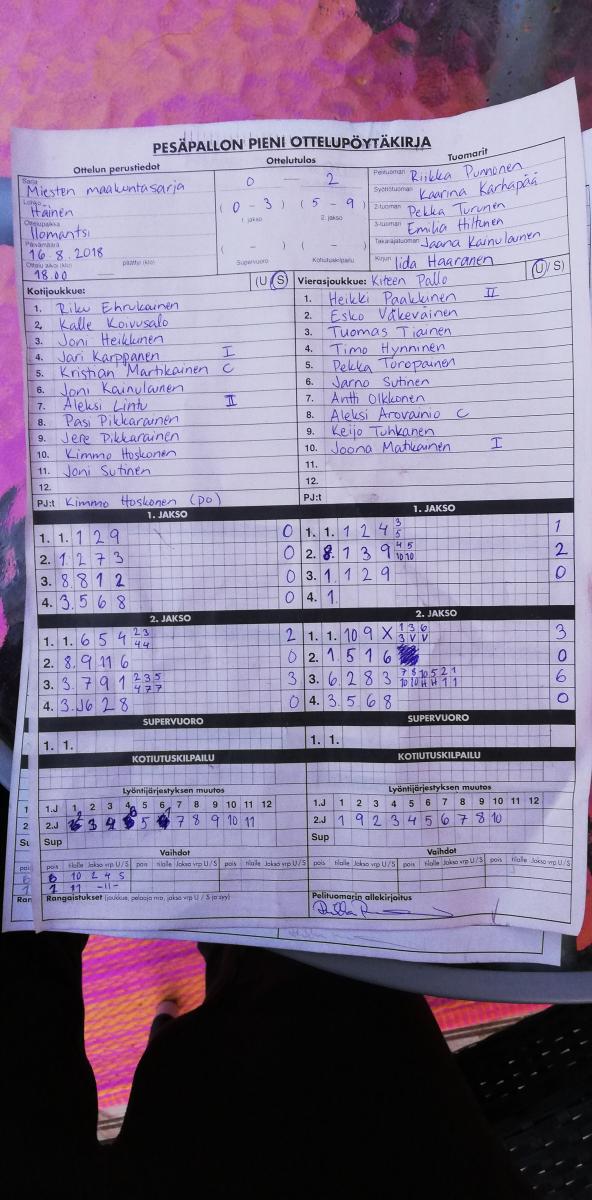 PESÄPALLON PIENI OTTELUPÖYTÄKIRJA
Ottelun perustiedot Ottelutulos Tuomarit
Sarja Miesten maakuntasarja 0 — 2 Pelituomari Riikka Punnonen
Lohko Itäinen (0 - 3) (5 - 9) Syöttötuomari Kaarina Karhapää
1. jakso 2. jakso 2-tuomari Pekka Turunen
Ottelupaikka Ilomantsi 3-tuomari Emilia Hiltunen
Päivämäärä 16.8.2018 ( - ) ( - ) Takarajatuomari Jaana Kainulainen
Ottelu alkoi (klo) 18.00 — päättyi (klo) Supervuoro Kotiutuskilpailu Kirjuri Iida Haaranen
Kotijoukkue: (U/S) Vierasjoukkue: Kiteen Pallo (U/S)
1. Riku Ehrukainen 1. Heikki Paakkinen II
2. Kalle Koivusalo 2. Esko Väkeväinen
3. Joni Heikkinen 3. Tuomas Tiainen
4. Jari Karppanen I 4. Timo Hynninen
5. Kristian Martikainen C 5. Pekka Toropainen
6. Joni Kainulainen 6. Jarno Sutinen
7. Aleksi Lintu II 7. Antti Olkkonen
8. Pasi Pikkarainen 8. Aleksi Arovainio C
9. Jere Pikkarainen 9. Keijo Tuhkanen
10. Kimmo Hoskonen 10. Joona Matikainen I
11. Joni Sutinen 11.
12. 12.
PJ:t Kimmo Hoskonen (po) PJ:t
1. JAKSO 1. JAKSO
1. 1. 1 2 9 0 1. 1. 1 2 4 3 5 1
2. 1. 2 7 3 0 2. 8. 1 3 9 4 5 10 10 2
3. 8. 8 1 2 0 3. 1. 1 2 9 0
4. 3. 5 6 8 0 4. 1.
2. JAKSO 2. JAKSO
1. 1. 6 5 4 2 3 4 4 2 1. 1. 10 9 X 1 3 6 3 V V 3
2. 8. 9 11 6 0 2. 1. 5 1 6 0
3. 3. 7 9 1 2 3 5 4 7 7 3 3. 6. 2 8 3 7 8 10 5 2 1 10 10 H H 1 1 6
4. 3. 6 2 8 0 4. 3. 5 6 8 0
SUPERVUORO SUPERVUORO
1. 1. 1. 1.
KOTIUTUSKILPAILU KOTIUTUSKILPAILU
Lyöntijärjestyksen muutos Lyöntijärjestyksen muutos
1.J 1 2 3 4 5 6 7 8 9 10 11 12 1.J 1 2 3 4 5 6 7 8 9 10 11 12
2.J 5 7 8 9 10 11 2.J 1 9 2 3 4 5 6 7 8 10
Sup Sup
Vaihdot Vaihdot
pois tilalle Jakso vrp U/S pois tilalle Jakso vrp U/S pois tilalle Jakso vrp U/S pois tilalle Jakso vrp U/S
6 10 2 4 S
1 11 -11-
Rangaistukset (joukkue, pelaaja nro, jakso vrp U / S ja syy) Pelituomarin allekirjoitus